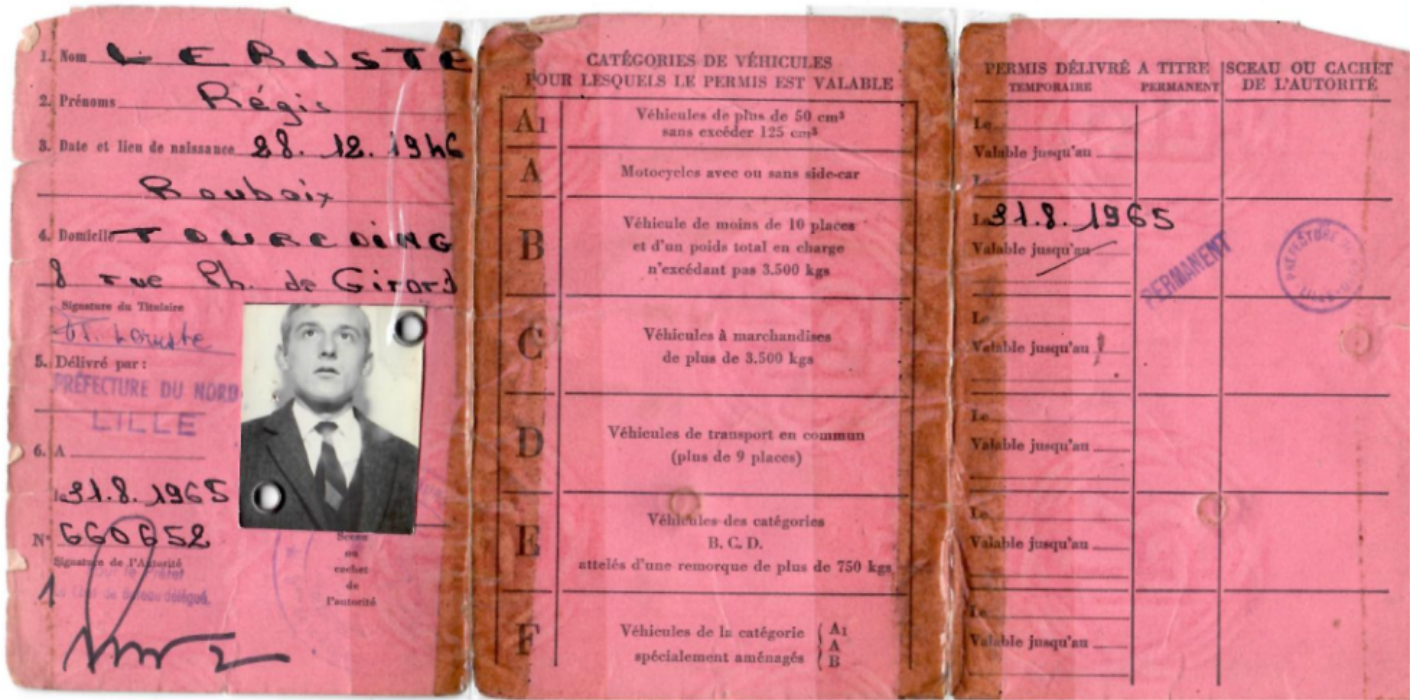 1. Nom LERUSTE
2. Prénoms Régis
3. Date et lieu de naissance 28. 12. 1946
Roubaix
4. Domicile TOURCOING
8 rue Ph. de Girard
Signature du Titulaire
Leruste
5. Délivré par :
PRÉFECTURE DU NORD
LILLE
6. A
le 31.8.1965
N° 660652
Signature de l'Autorité
Pour le Préfet
Le Chef de Bureau délégué,
Sceau
ou
cachet
de
l'autorité
CATÉGORIES DE VÉHICULES
POUR LESQUELS LE PERMIS EST VALABLE
A1 Véhicules de plus de 50 cm³
sans excéder 125 cm³
A Motocycles avec ou sans side-car
B Véhicule de moins de 10 places
et d'un poids total en charge
n'excédant pas 3.500 kgs
C Véhicules à marchandises
de plus de 3.500 kgs
D Véhicules de transport en commun
(plus de 9 places)
E Véhicules des catégories
B. C. D.
attelés d'une remorque de plus de 750 kgs
F Véhicules de la catégorie A1
spécialement aménagés A
B
PERMIS DÉLIVRÉ A TITRE
TEMPORAIRE PERMANENT
SCEAU OU CACHET
DE L'AUTORITÉ
Le
Valable jusqu'au
Le
Le 31.8.1965
Valable jusqu'au
PERMANENT
Le
Valable jusqu'au
Le
Valable jusqu'au
Le
Valable jusqu'au
Le
Valable jusqu'au